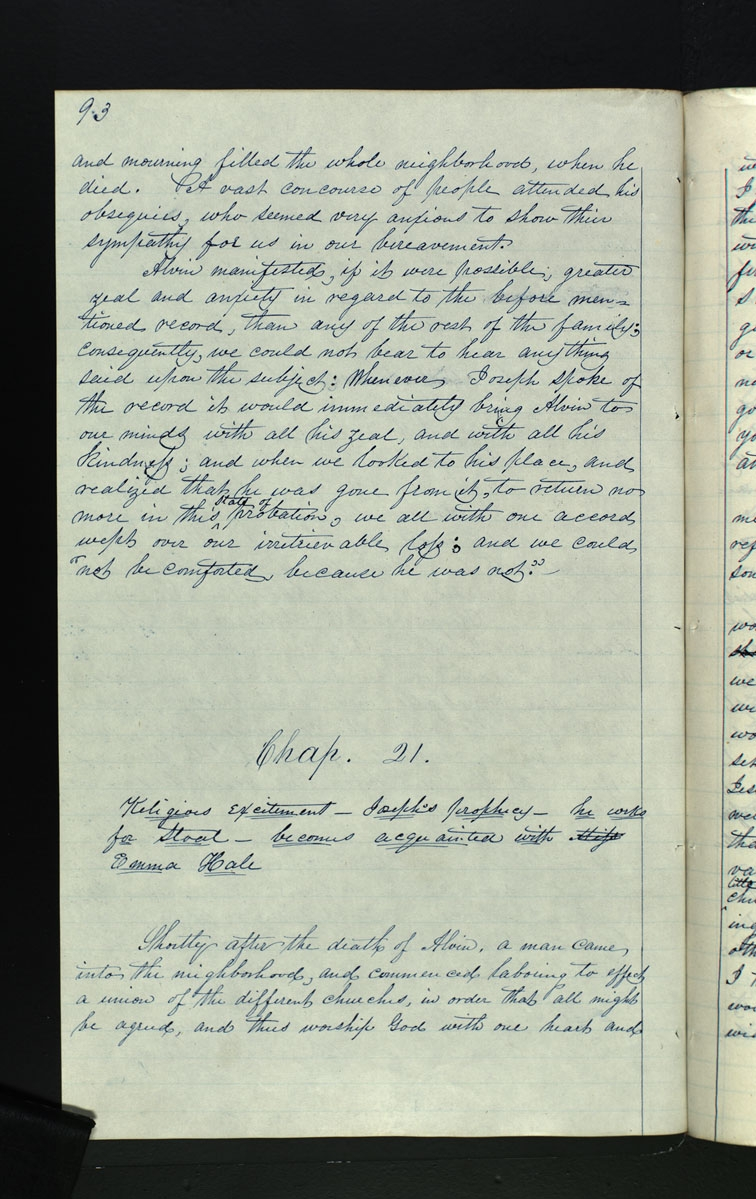 93
and mourning filled the whole neighborhood, when he
died. A vast concourse of people attended his
obsequies, who seemed very anxious to show their
sympathy for us in our bereavement.
Alvin manifested, if it were possible, greater
zeal and anxiety in regard to the before men=
tioned record, than any of the rest of the family;
consequently, we could not bear to hear any thing
said upon the subject: Whenever Joseph spoke of
the record it would immediately bring Alvin to
our minds with all his zeal, and with all his
kindness; and when we looked to his place, and
realized that he was gone from it, to return no
more in this state of probation, we all with one accord
wept over our irretrievable loss; and we could
"not be comforted, because he was not."
Chap. 21.
Religious excitement – Joseph's prophecy – he works
for Stoal – becomes acquainted with Miss
Emma Hale
Shortly after the death of Alvin, a man came
into the neighborhood, and commenced laboing to effect
a union of the different churches, in order that all might
be agreed, and thus worship God with one heart and